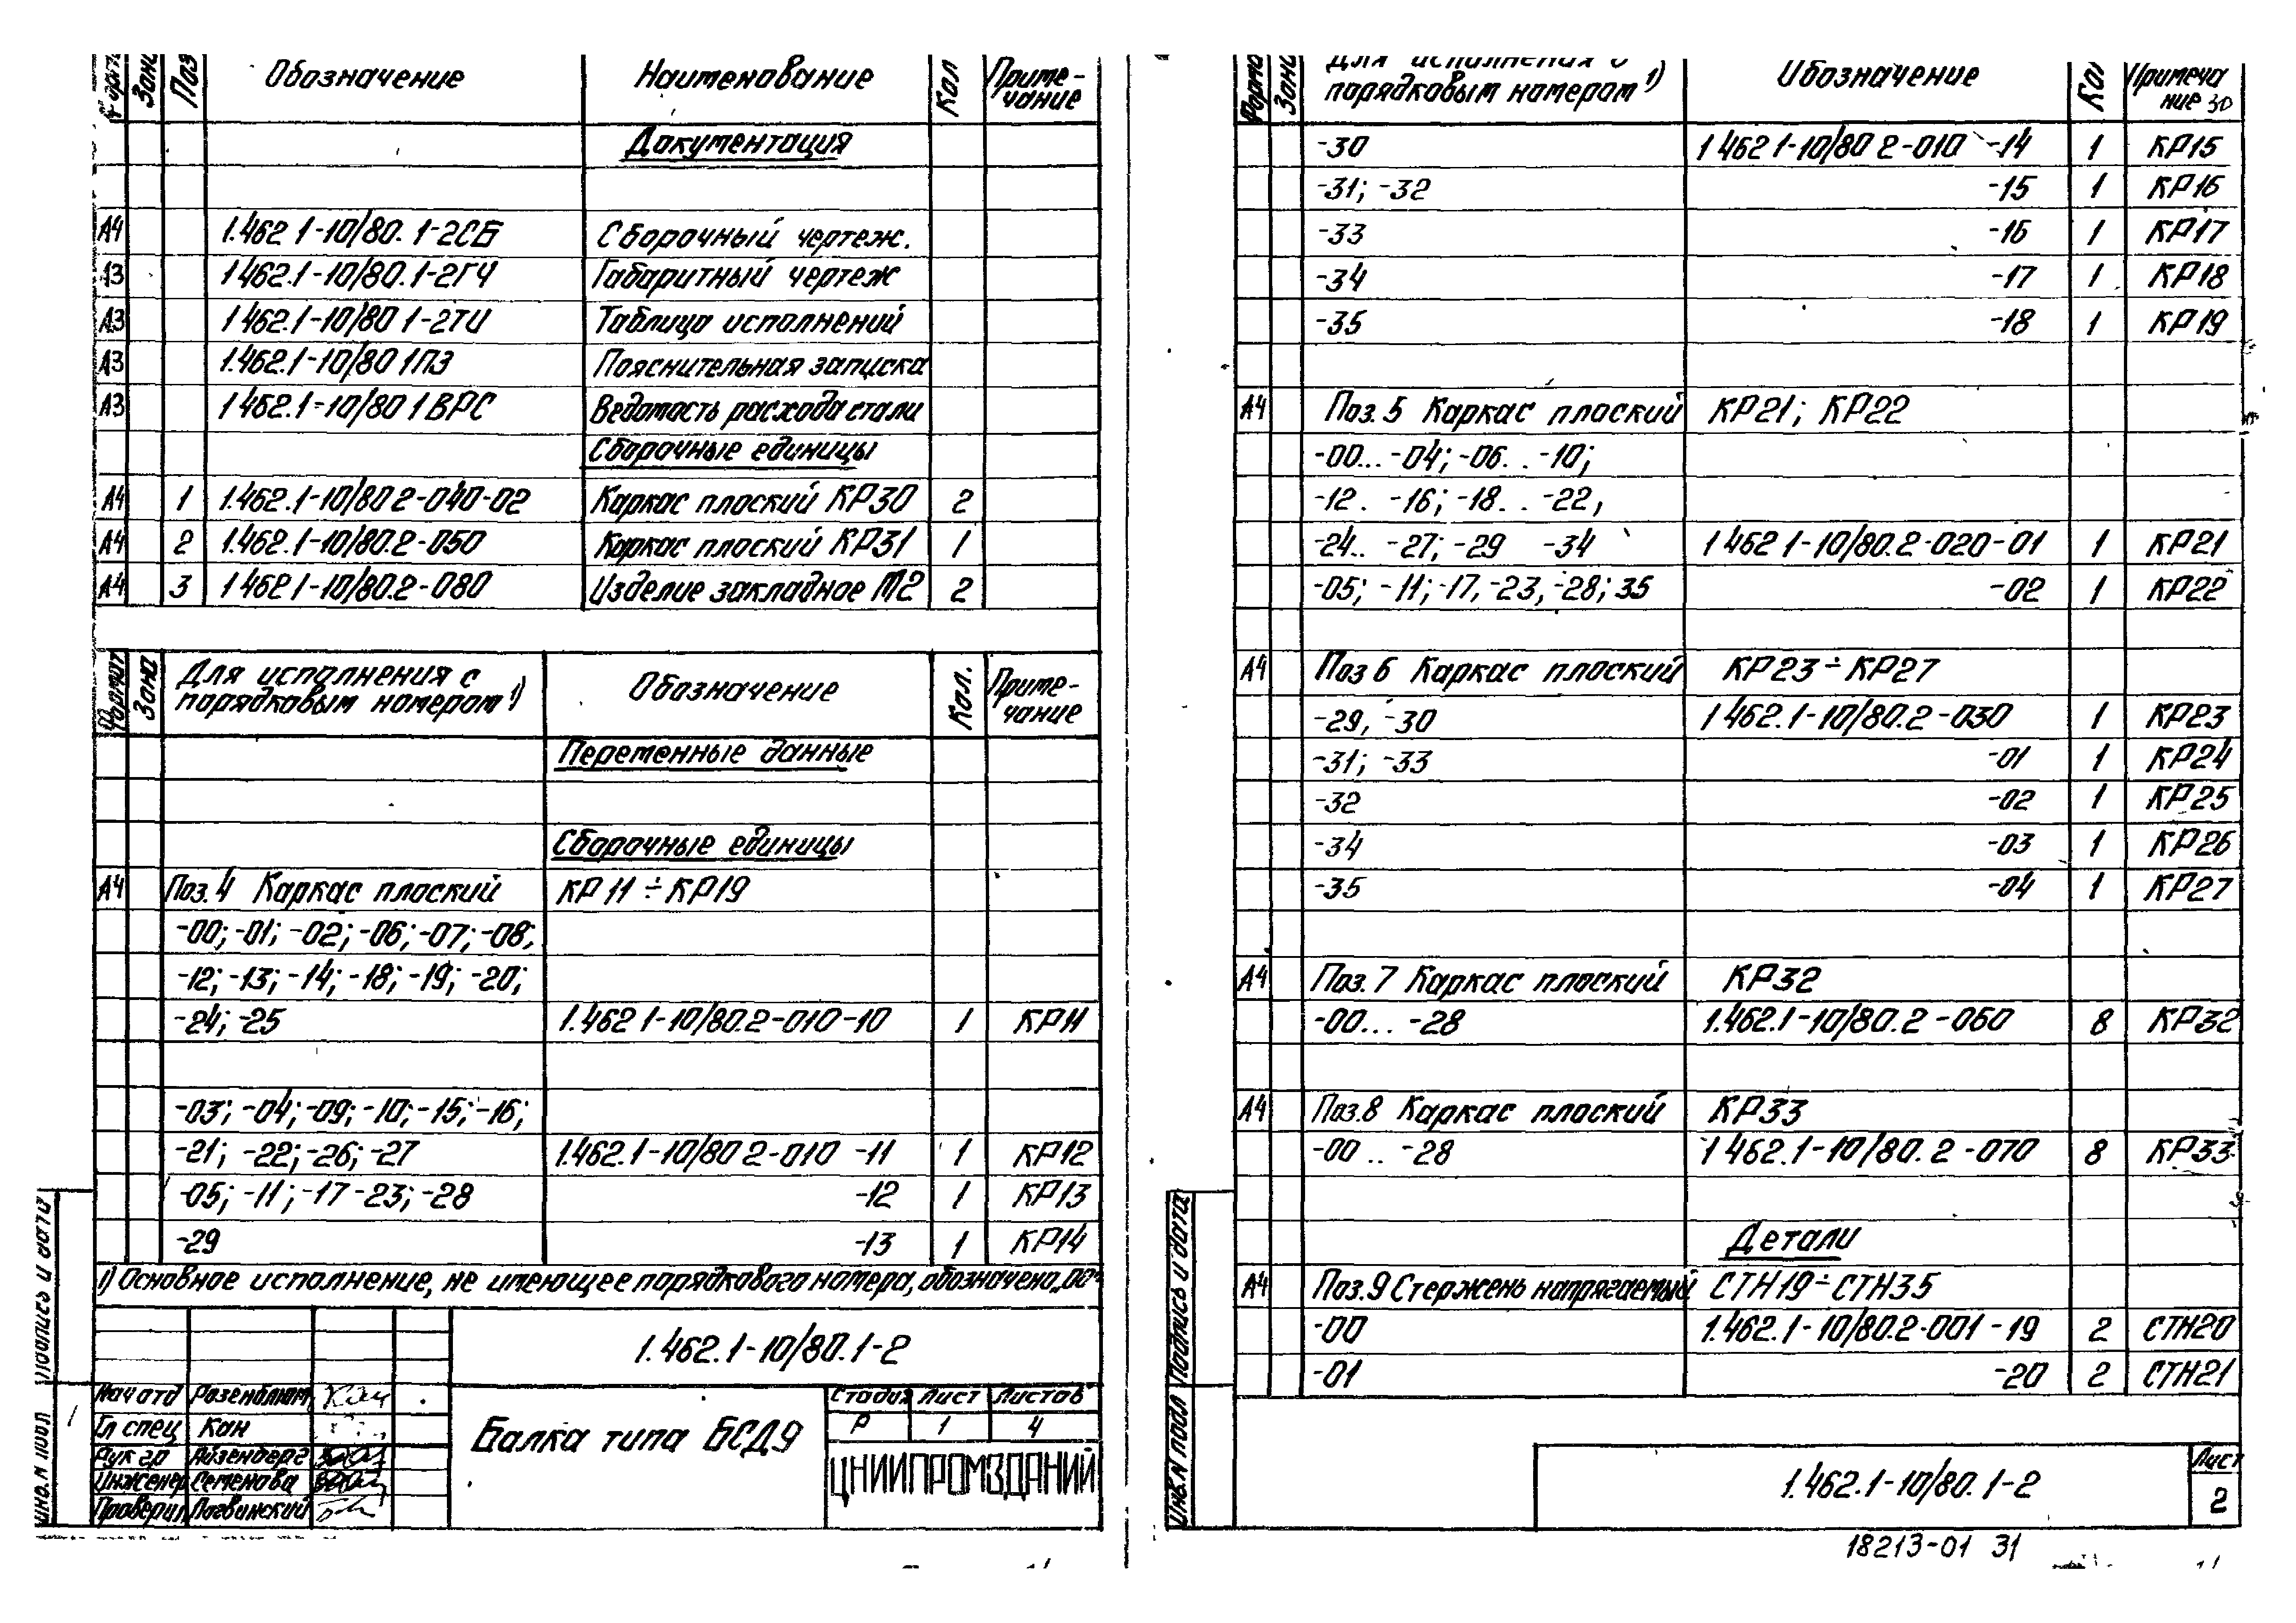 Зона Поз Обозначение Наименование Кол Приме-
чание
Документация
А4 1.462 1-10/80. 1-2СБ Сборочный чертеж.
А3 1462.1-10/80.1-2ГЧ Габаритный чертеж
А3 1462.1-10/80 1-2ТИ Таблица исполнений
А3 1.462.1-10/80 1ПЗ Пояснительная записка
А3 1462.1-10/80 1ВРС Ведомость расхода стали
Сборочные единицы
А4 1 1.462.1-10/80 2-040-02 Каркас плоский КР30 2
А4 2 1.462.1-10/80.2-050 Каркас плоский КР31 1
А4 3 1 462 1-10/80.2-080 Изделие закладное М2 2
Формат Зона Для исполнения с
порядковым номером 1) Обозначение Кол. Приме-
чание
Переменные данные
Сборочные единицы
А4 Поз. 4 Каркас плоский КР 11 ÷ КР19
-00; -01; -02; -06; -07; -08;
-12; -13; -14; -18; -19; -20;
-24; -25 1.462 1-10/80.2-010-10 1 КР11
-03; -04; -09; -10; -15; -16;
-21; -22; -26; -27 1.462.1-10/80 2-010 -11 1 КР12
-05; -11; -17 -23; -28 -12 1 КР13
-29 -13 1 КР14
1) Основное исполнение, не имеющее порядкового номера, обозначено „00"
1.462.1-10/80.1-2
Нач отд Розенблюм
Гл спец Кан
Рук гр Айзенберг
Инженер Семенова
Проверил Логвинский
Балка типа БСД9
Стадия Лист Листов
Р 1 4
ЦНИИПРОМЗДАНИЙ
Подпись и дата
Инв. N подл
Формат Зона Для исполнения с
порядковым номером 1) Обозначение Кол Примеча
ние 30
-30 1 462 1-10/80 2-010 -14 1 КР15
-31; -32 -15 1 КР16
-33 -16 1 КР17
-34 -17 1 КР18
-35 -18 1 КР19
А4 Поз. 5 Каркас плоский КР21; КР22
-00... -04; -06. . -10;
-12. -16; -18. . -22,
-24.. -27; -29 -34 1 462 1-10/80.2-020-01 1 КР21
-05; -11; -17, -23, -28; 35 -02 1 КР22
А4 Поз 6 Каркас плоский КР23 ÷ КР27
-29, -30 1 462.1-10/80.2-030 1 КР23
-31; -33 -01 1 КР24
-32 -02 1 КР25
-34 -03 1 КР26
-35 -04 1 КР27
А4 Поз. 7 Каркас плоский КР32
-00... -28 1.462.1-10/80.2-060 8 КР32
А4 Поз.8 Каркас плоский КР33
-00 .. -28 1 462.1-10/80. 2-070 8 КР33
Детали
А4 Поз. 9 Стержень напрягаемый СТН19÷СТН35
-00 1.462.1-10/80.2-001 -19 2 СТН20
-01 -20 2 СТН21
Подпись и дата
Инв. N подл
1.462.1-10/80. 1-2
Лист
2
18213-01 31